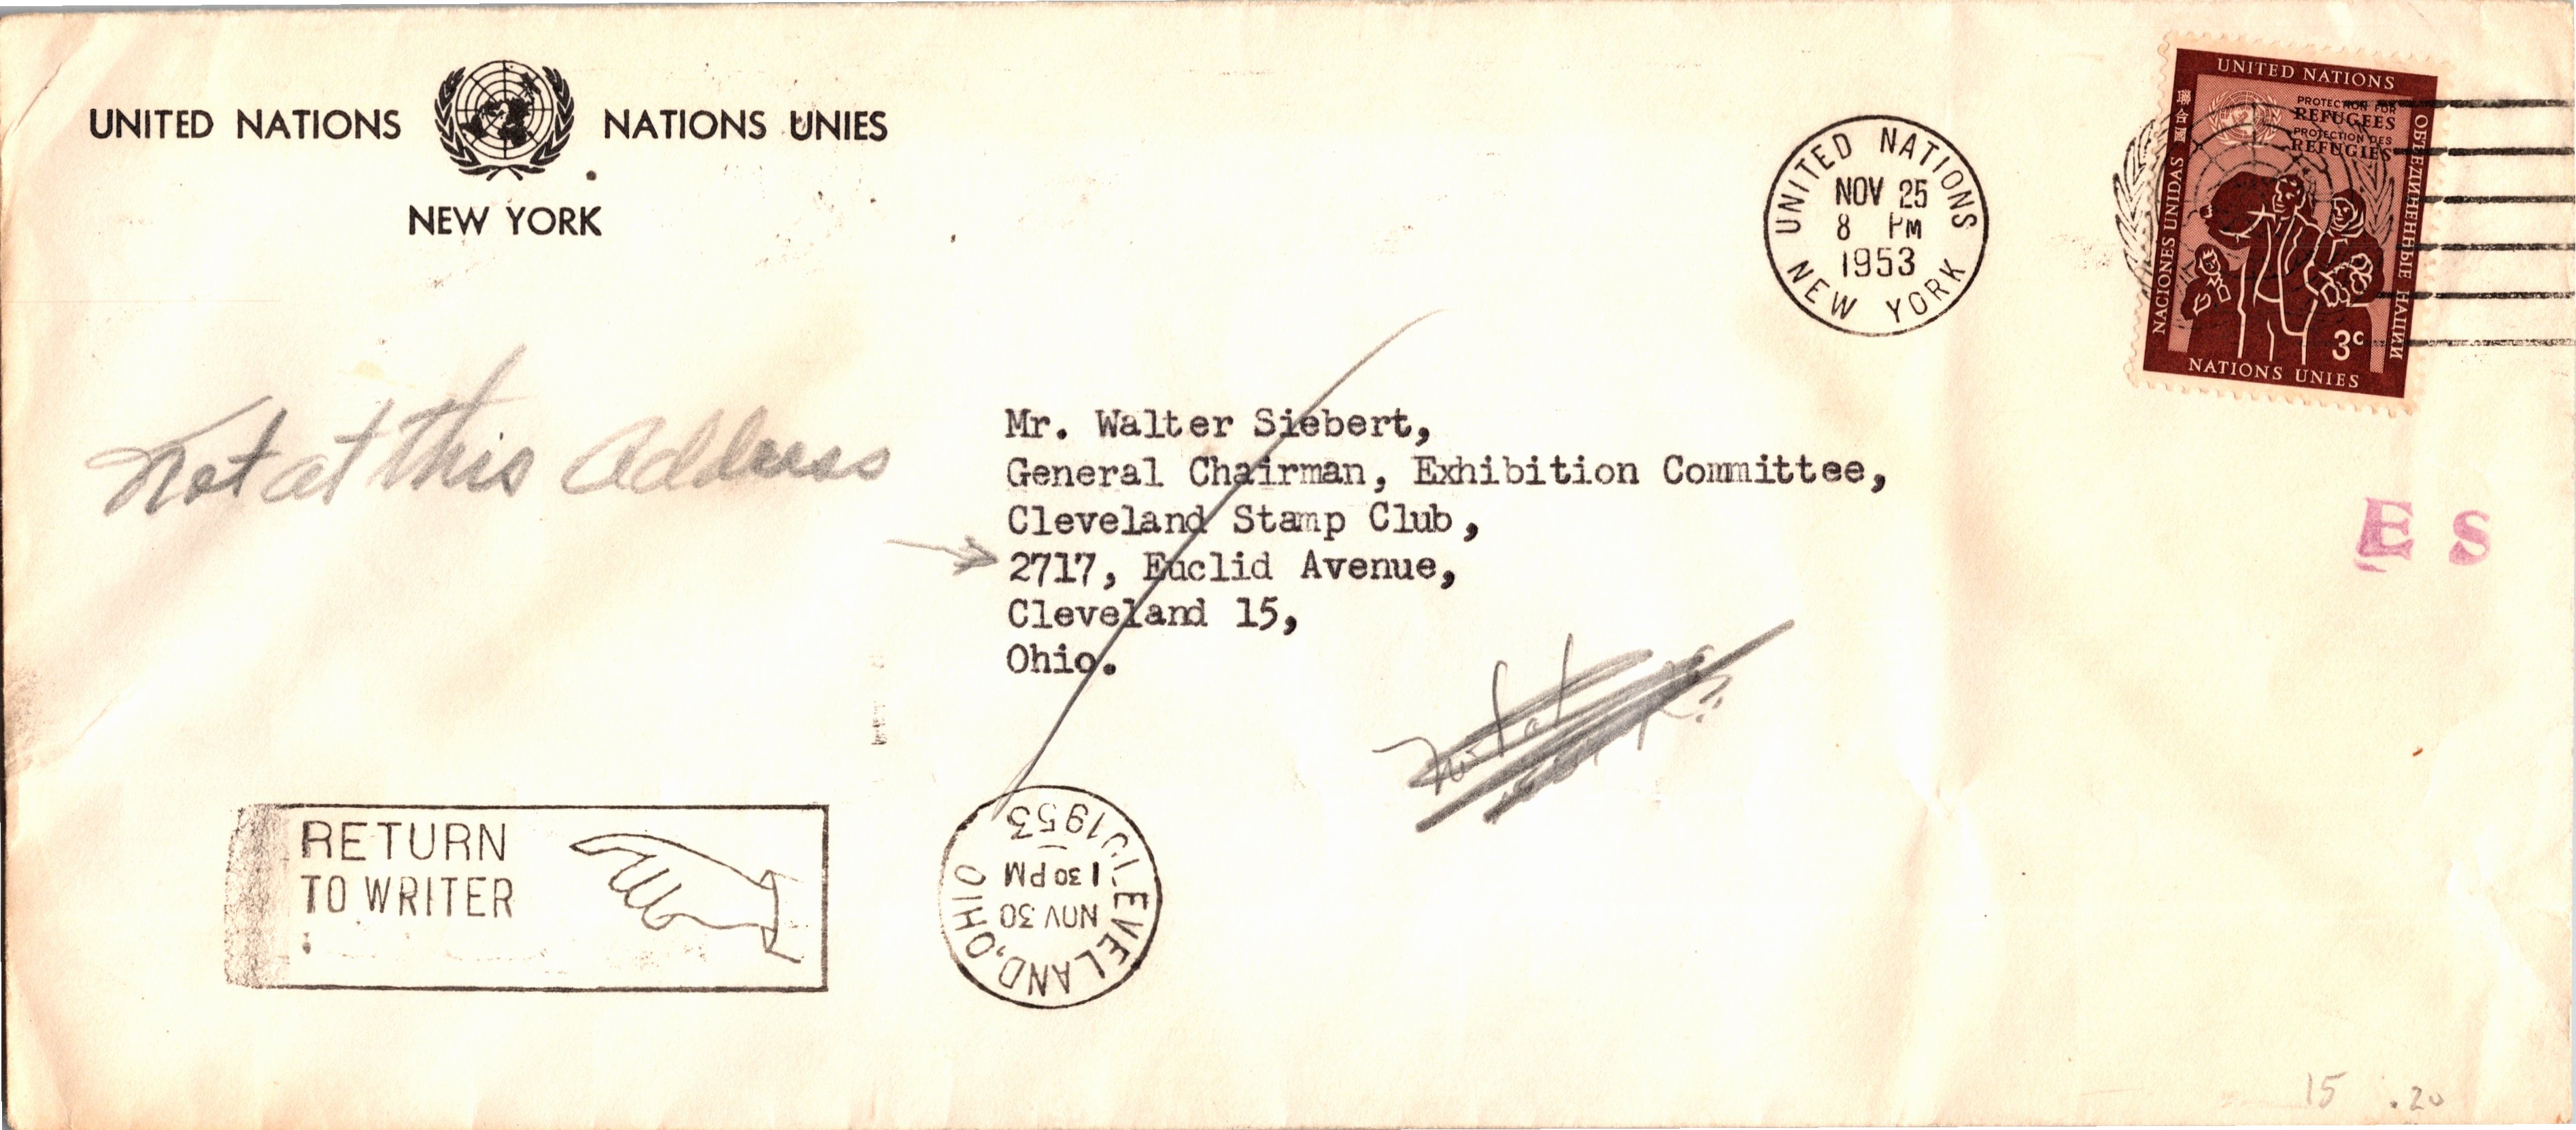 UNITED NATIONS NATIONS UNIES
NEW YORK
UNITED NATIONS
NEW YORK
NOV 25
8 PM
1953
UNITED NATIONS
PROTECTION FOR
REFUGEES
PROTECTION DES
REFUGIES
聯合國
NACIONES UNIDAS
ОБЪЕДИНЕННЫЕ НАЦИИ
3c
NATIONS UNIES
Not at this Address
Mr. Walter Siebert,
General Chairman, Exhibition Committee,
Cleveland Stamp Club,
2717, Euclid Avenue,
Cleveland 15,
Ohio.
E S
RETURN
TO WRITER
CLEVELAND, OHIO
NOV 30
1 30 PM
1953
15 .20